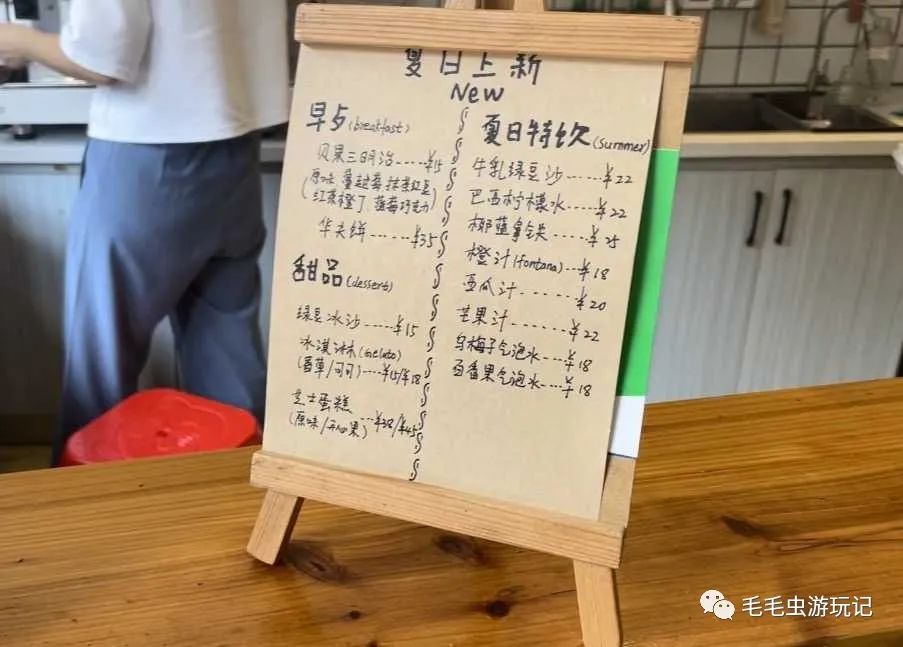 夏日上新
New
早歺(breakfast)
贝果三明治.....¥15
(原味 蔓越莓 抹茶红豆
红茶橙丁 蓝莓巧克力)
华夫饼......¥35
甜品(dessert)
绿豆冰沙....¥15
冰淇淋(Gelato)
(香草/可可)....¥15/¥18
芝士蛋糕
(原味/开心果)...¥38/¥45
夏日特饮(summer)
牛乳绿豆沙.....¥22
巴西柠檬水.....¥22
椰蓝拿铁.....¥25
橙汁(fontana)...¥18
西瓜汁......¥20
芒果汁......¥22
乌梅子气泡水...¥18
百香果气泡水...¥18
毛毛虫游玩记